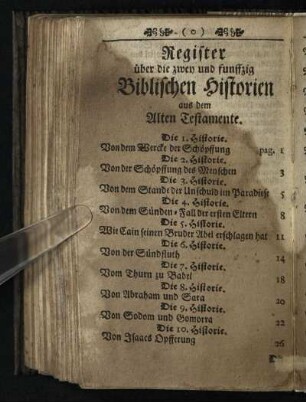 (o)
Register
über die zwey und funffzig
Biblischen Historien
aus dem
Alten Testamente.
Die 1. Historie.
Von dem Wercke der Schöpffung pag. 1
Die 2. Historie.
Von der Schöpffung des Menschen 3
Die 3. Historie.
Von dem Stande der Unschuld im Paradiese 5
Die 4. Historie.
Von dem Sünden-Fall der ersten Eltern 8
Die 5. Historie.
Wie Cain seinen Bruder Abel erschlagen hat 11
Die 6. Historie.
Von der Sündfluth 14
Die 7. Historie.
Vom Thurn zu Babel 18
Die 8. Historie.
Von Abraham und Sara 20
Die 9. Historie.
Von Sodom und Gomorra 22
Die 10. Historie.
Von Isaacs Opfferung 26
Die